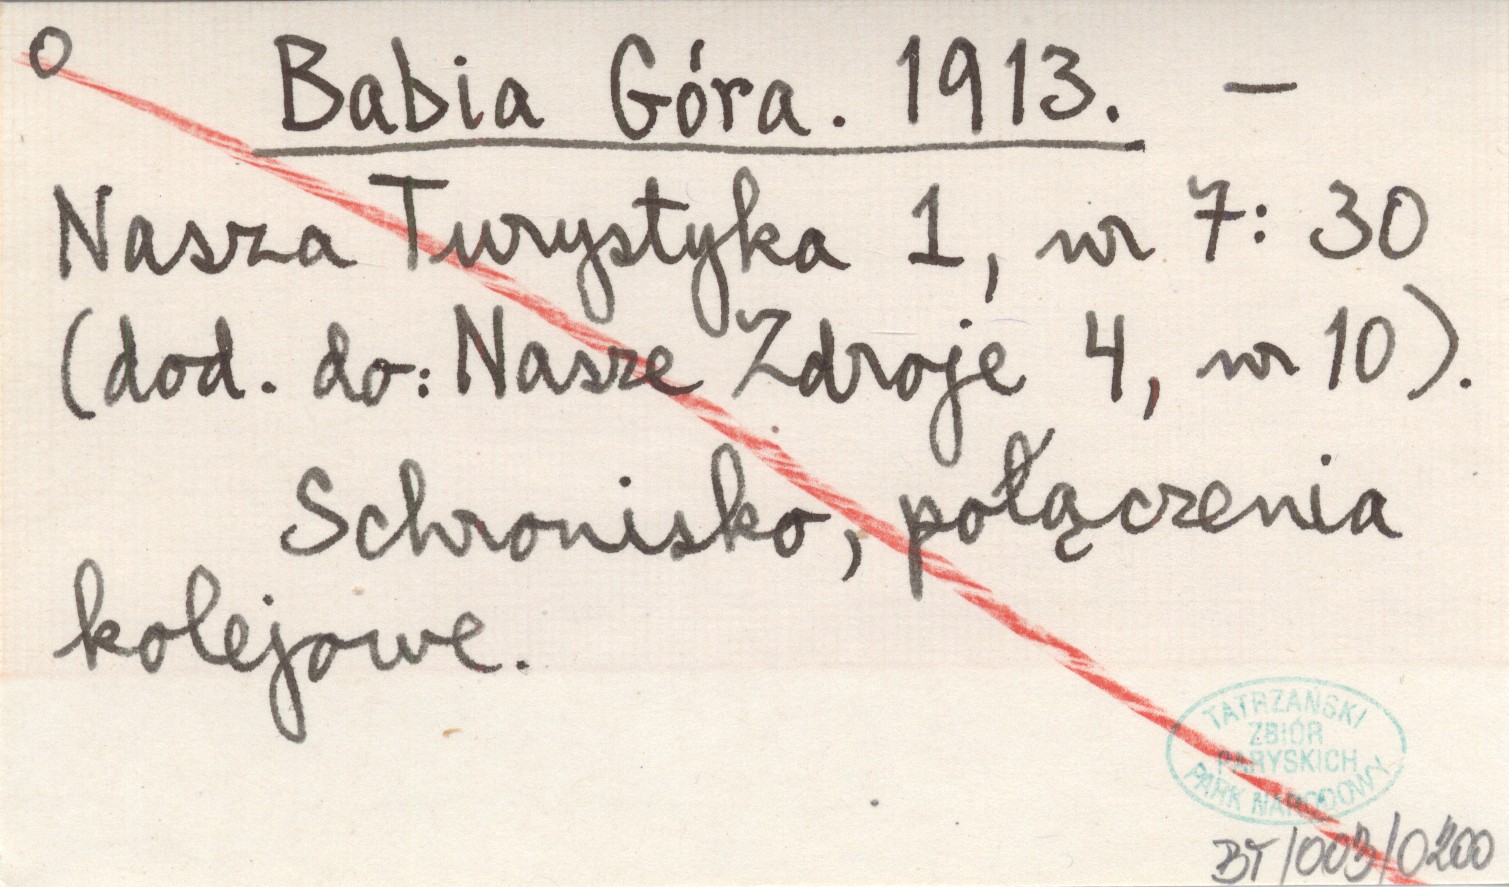 o Babia Góra. 1913. —
Nasza Turystyka 1, nr 7: 30
(dod. do: Nasze Zdroje 4, nr 10).
Schronisko, połączenia
kolejowe.
TATRZAŃSKI
ZBIÓR
PARYSKICH
PARK NARODOWY
BT/003/0200